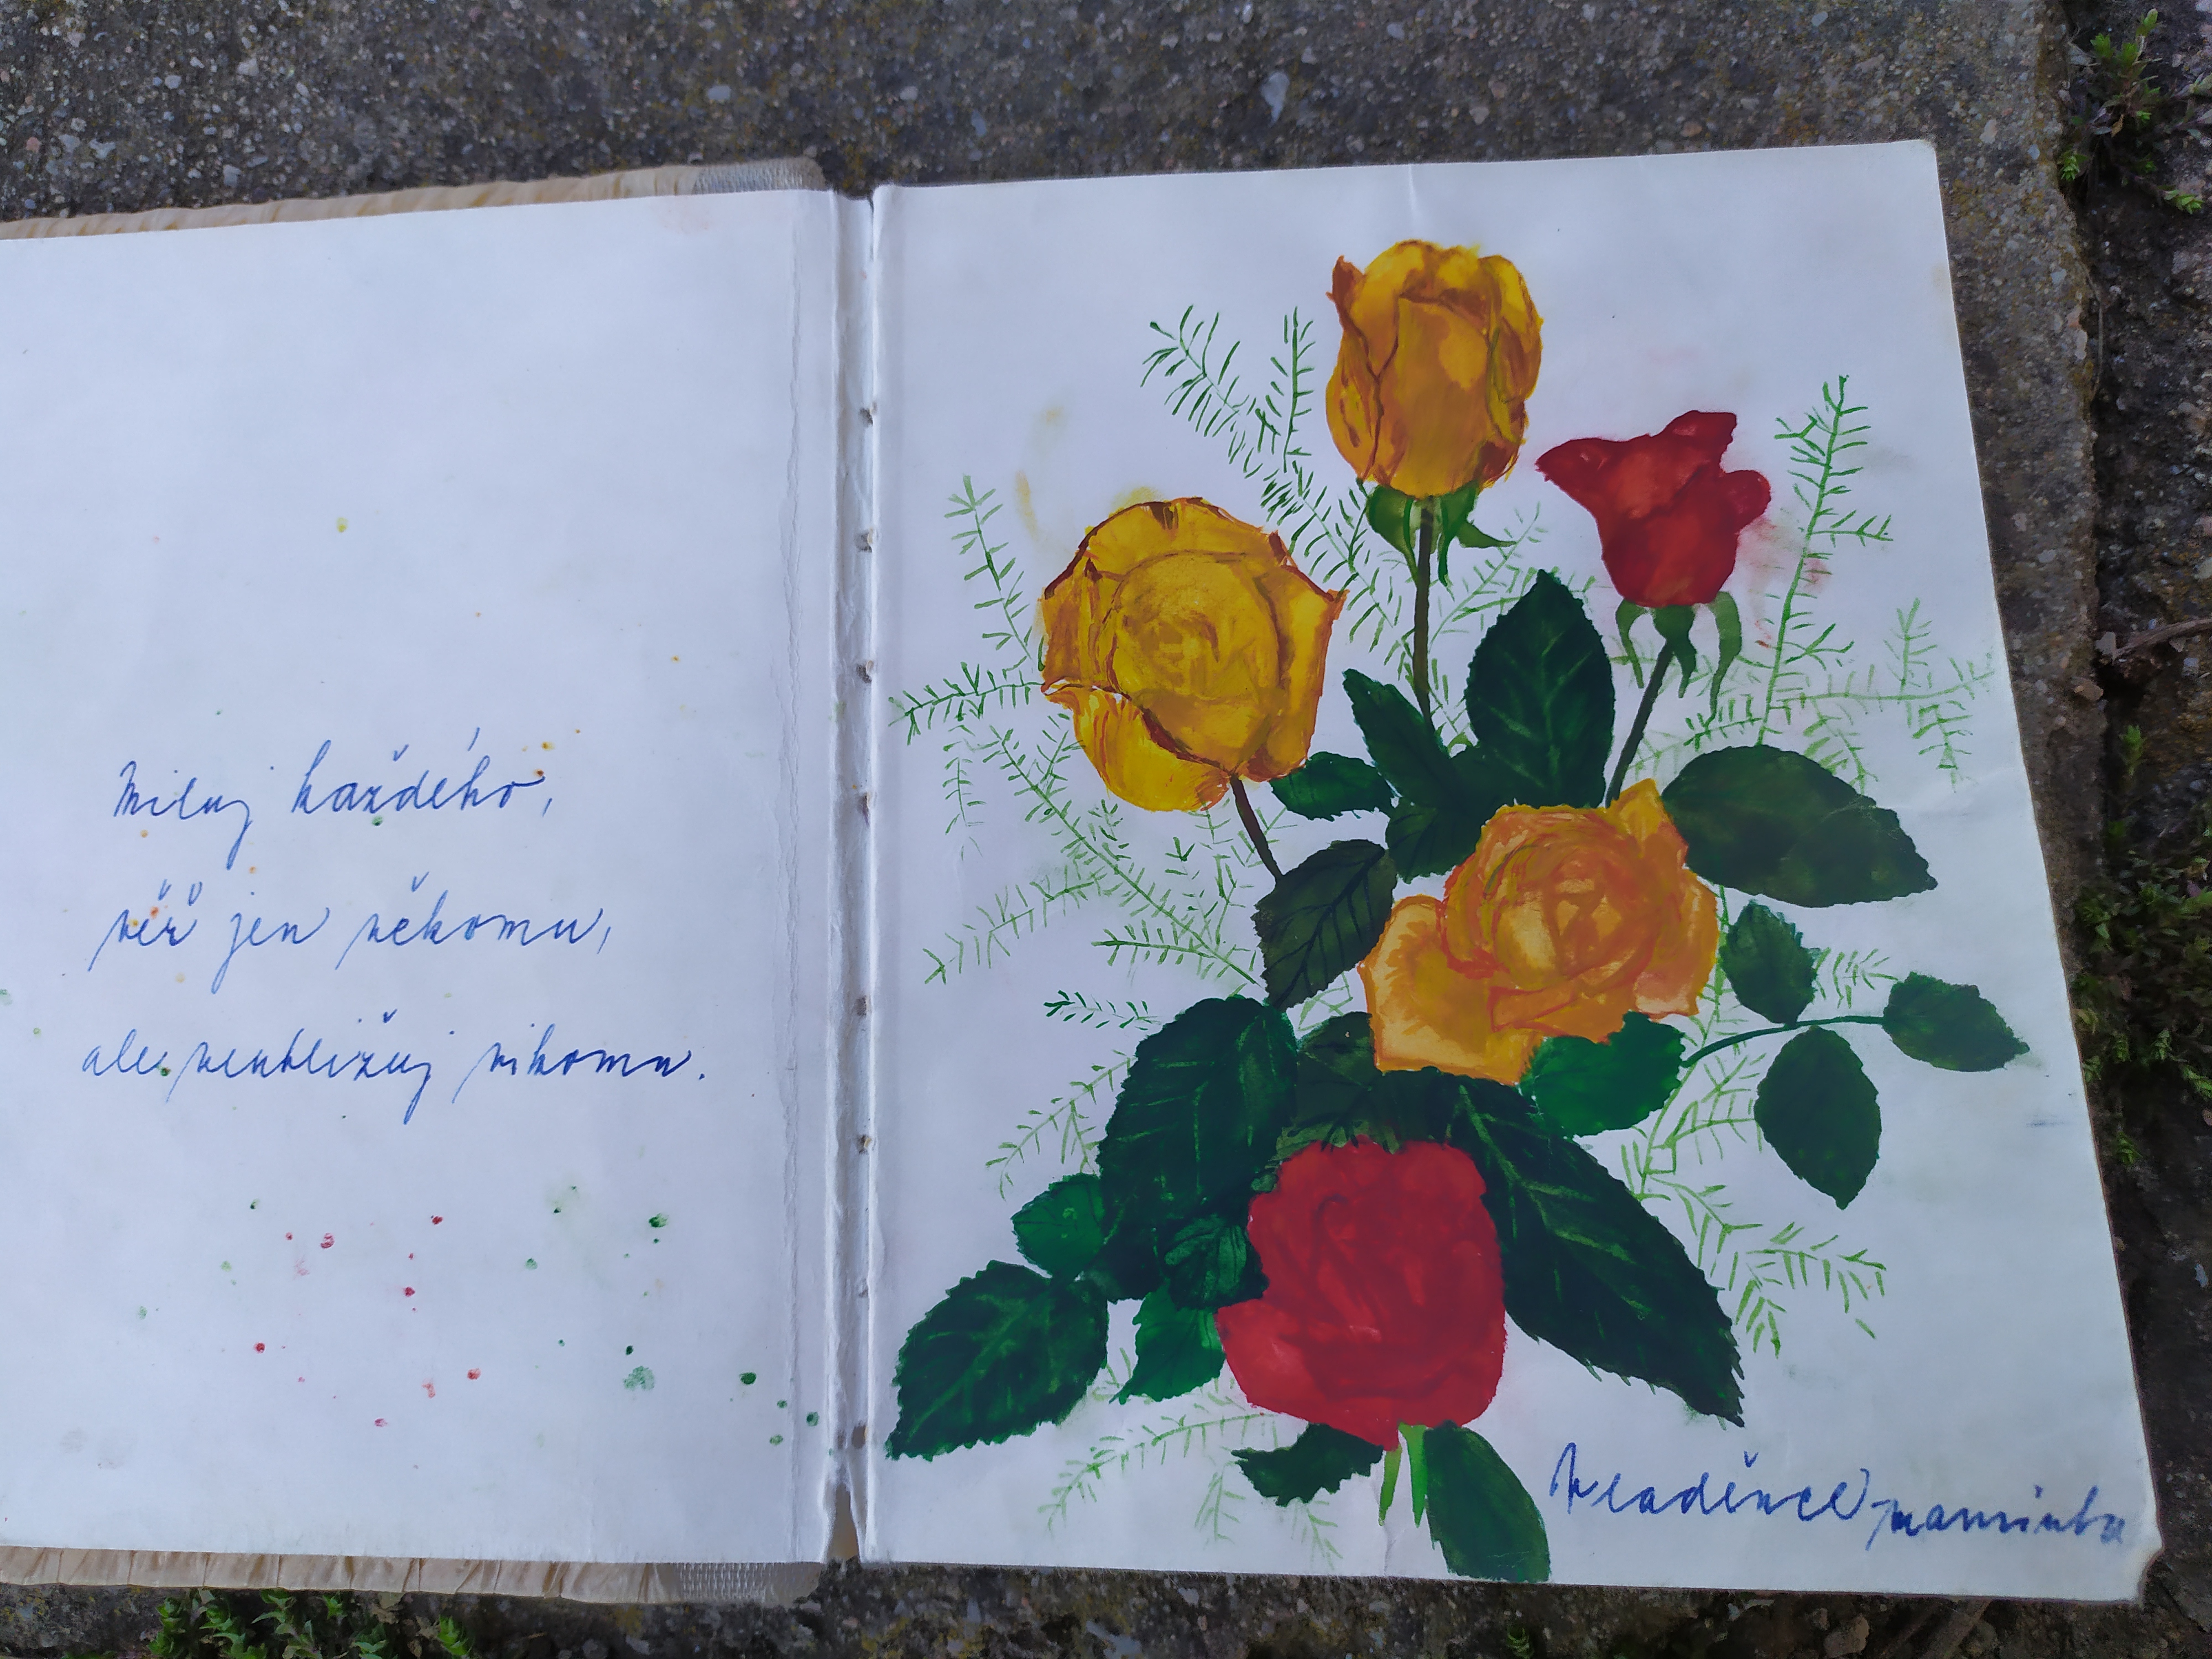 Miluj každého,
věř jen někomu,
ale neubližuj nikomu.
Mladěnce maminka